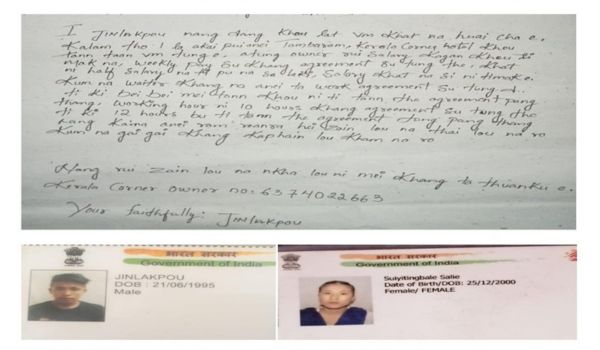 I JINLAKPOU nang dang Khou lat vm Khat na huai cho e.
Kalam tho 1 la akai puianei Tambaram, Kerala Corner hotel Khou
tann daan vm tung e, atung owner rui Salary Kgan Khou ti
mak na, weekly Pay Su Khang agreement Su tung the, Khat
ni half Salary na ti pu na sa lati, Salary Khat na si ni timake.
Kum na waitre Khang na anei ta work agreement Su tung
ti ki bei bei mei tann Khou ni ti tann the agreement pung
thang, Working hour ni 10 hours Khang agreement Su tung the
ti ki 12 hours bu ti tann the agreement tung pang thang
nang Kaina anei ram reanra hei Zain lou na thai lou na ro
Kum na gai gai Khang Kaphain lou Kham na ro
Nang rui Zain lou na nkha lou ni mei Khang ta thuanku e.
Kerala Corner owner no: 6374022663
Your faithfully: JINLAKPOU
भारत सरकार
Government of India
JINLAKPOU
DOB : 21/06/1995
Male
भारत सरकार
Government of India
Suiyitingbale Salie
Date of Birth/DOB: 25/12/2000
Female/ FEMALE